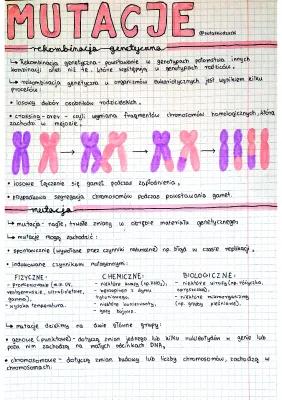 MUTACJE
rekombinacja genetyczna
↳ Rekombinacja genetyczna - powstawanie w genotypach potomstwa innych
kombinacji alleli niż te, które występują w genotypach rodziców.
↳ rekombinacja genetyczna u organizmów eukariotycznych jest wynikiem kilku
procesów:
• losowy dobór osobników rodzicielskich,
• crossing-over - czyli wymiana fragmentów chromosomów homologicznych, która
zachodzi w mejozie,
• losowe łączenie się gamet podczas zapłodnienia,
• przypadkowa segregacja chromosomów podczas powstawania gamet.
mutacja
↳ mutacja - nagłe, trwałe zmiany w obrębie materiału genetycznego.
↳ mutacje mogą zachodzić:
• spontanicznie (wywołane przez czynniki naturalne) np. błąd w czasie replikacji,
• indukowane czynnikami mutagennymi:
FIZYCZNE: CHEMICZNE: BIOLOGICZNE:
- promieniowanie (m.in. UV,
rentgenowskie, ultrafioletowe,
gamma),
- wysoka temperatura.
- niektóre kwasy (np. HNO₂),
- benzopiren z dymu
tytoniowego,
- niektóre konserwanty,
- gazy bojowe.
- niektóre wirusy (np. różyczka,
opryszczka),
- niektóre mikroorganizmy
(np. grzyby pleśniowe).
↳ mutacje dzielimy na dwie główne grupy:
• genowe (punktowe) - dotyczą zmian jednego lub kilku nukleotydów w genie lub
poza nim zachodzą na małych odcinkach DNA,
• chromosomowe - dotyczą zmian budowy lub liczby chromosomów, zachodzą w
chromosomach.